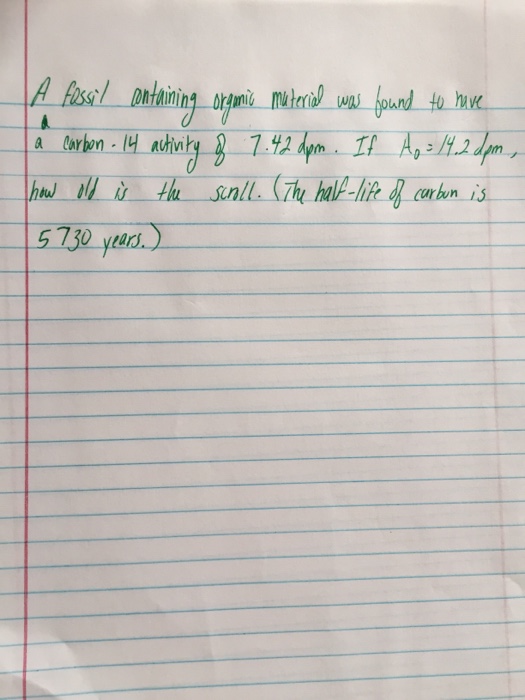 A fossil containing organic material was found to have
a carbon-14 activity of 7.42 dpm. If A₀ = 14.2 dpm,
how old is the scroll. (The half-life of carbon is
5730 years.)